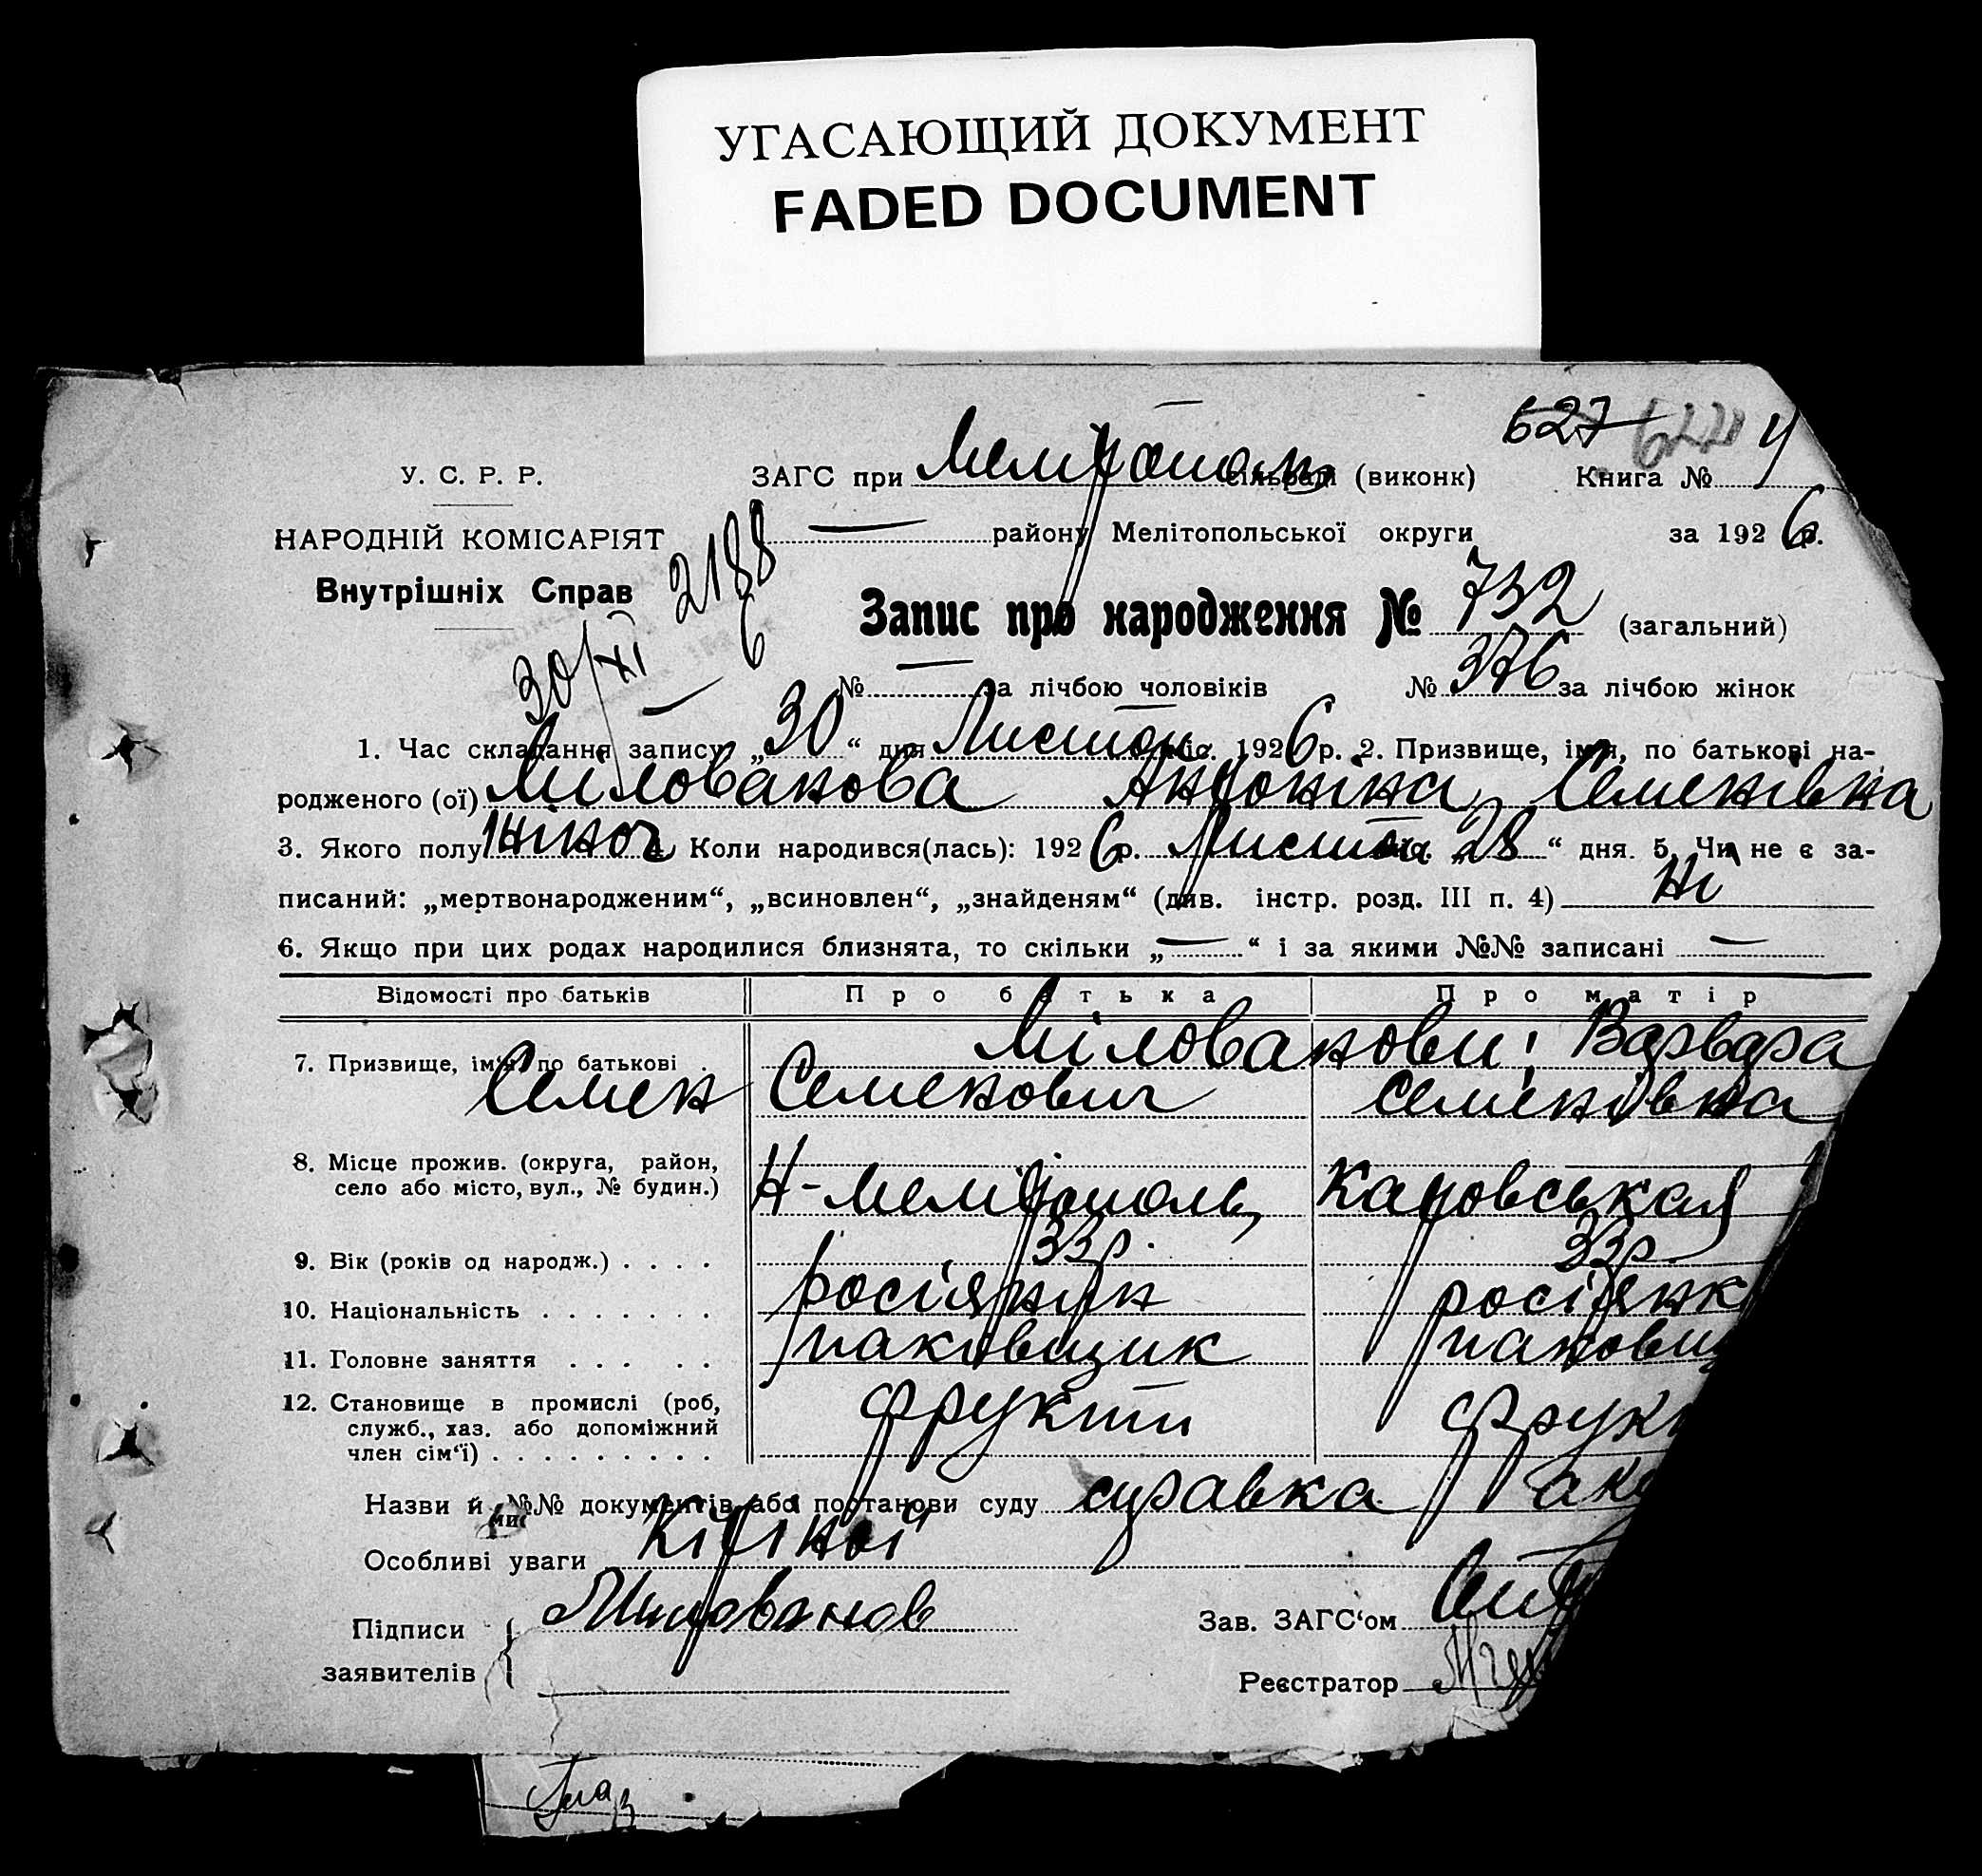 УГАСАЮЩИЙ ДОКУМЕНТ
FADED DOCUMENT
627 622
У. С. Р. Р.
ЗАГС при Мелітополь сільраді (виконк) Книга №
НАРОДНІЙ КОМІСАРІЯТ
— району Мелітопольської округи за 1926 р.
Внутрішніх Справ
2188
6
30/XI
Запис про народження № 732 (загальний)
№ — за лічбою чоловіків № 376 за лічбою жінок
1. Час складання запису „30“ дня Листоп міс. 1926 р. 2. Призвище, імя, по батькові на-
родженого (ої) Мілованова Антоніна Семенівна
3. Якого полу жіноч 4. Коли народився(лась): 1926 р. Листоп міс. „28“ дня. 5. Чи не є за-
писаний: „мертвонародженим“, „всиновлен“, „знайденям“ (див. інстр. розд. III п. 4) Ні
6. Якщо при цих родах народилися близнята, то скільки „—“ і за якими №№ записані —
Відомості про батьків Про батька Про матір
7. Призвище, ім'я, по батькові . Міловановы: Варвара
Семен Семенович Семенівна
8. Місце прожив. (округа, район,
село або місто, вул., № будин.) Н-Мелітополь,
9. Вік (років од народж.) . . . . 33р. 33р
10. Національність . . . . . . . росіянин росіянк
11. Головне заняття . . . . . паковщик паковщ
12. Становище в промислі (роб,
служб., хаз. або допоміжний
член сім'ї) . . . . . . . . . фрукти фрук
Назви й №№ документів або постанови суду справка
Особливі уваги
Підписи Милованов Зав. ЗАГС'ом
заявителів Реєстратор